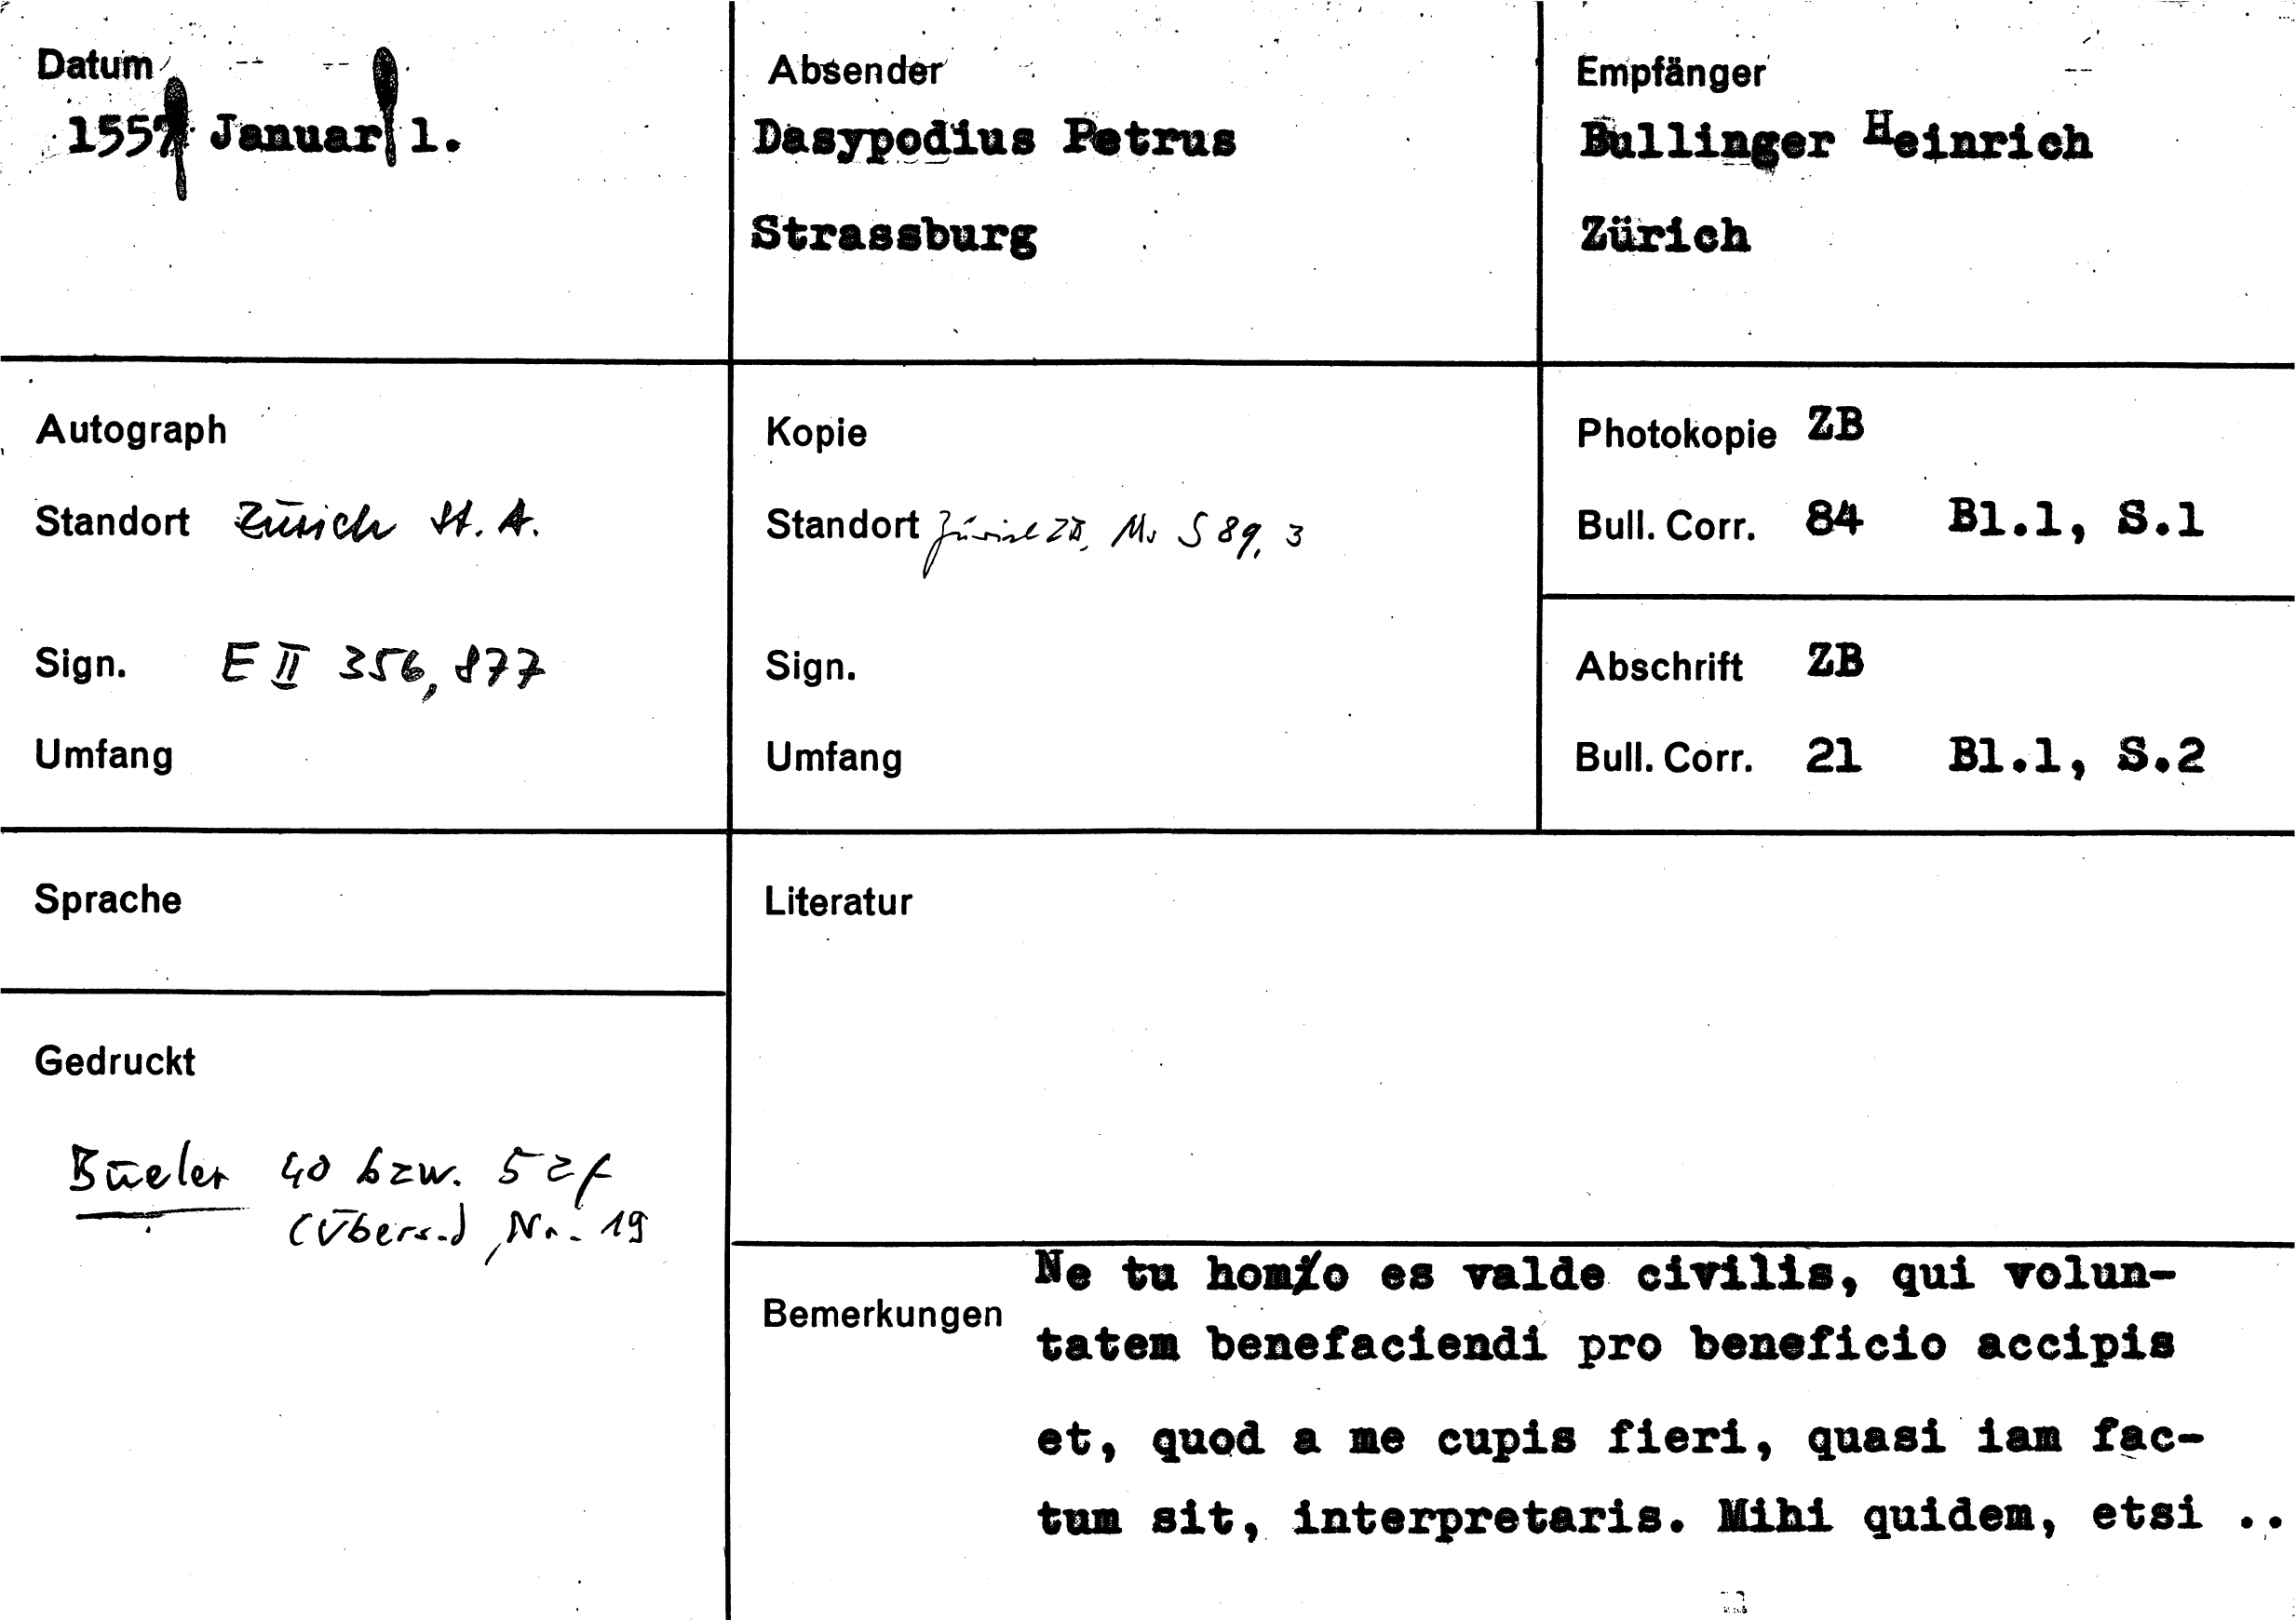 Datum
1557 Januar 1.
Absender
Dasypodius Petrus
Strassburg
Empfänger
Bullinger Heinrich
Zürich
Autograph
Standort Zürich St. A.
Sign. E II 356, 877
Umfang
Kopie
Standort Zürich ZB, Ms S 89, 3
Sign.
Umfang
Photokopie ZB
Bull. Corr. 84 Bl.1, S.1
Abschrift ZB
Bull. Corr. 21 Bl.1, S.2
Sprache
Gedruckt
Büeler 40 bzw. 52f
(Übers.), Nr. 19
Literatur
Bemerkungen
Ne tu homo es valde civilis, qui volun-
tatem benefaciendi pro beneficio accipis
et, quod a me cupis fieri, quasi iam fac-
tum sit, interpretaris. Mihi quidem, etsi ..